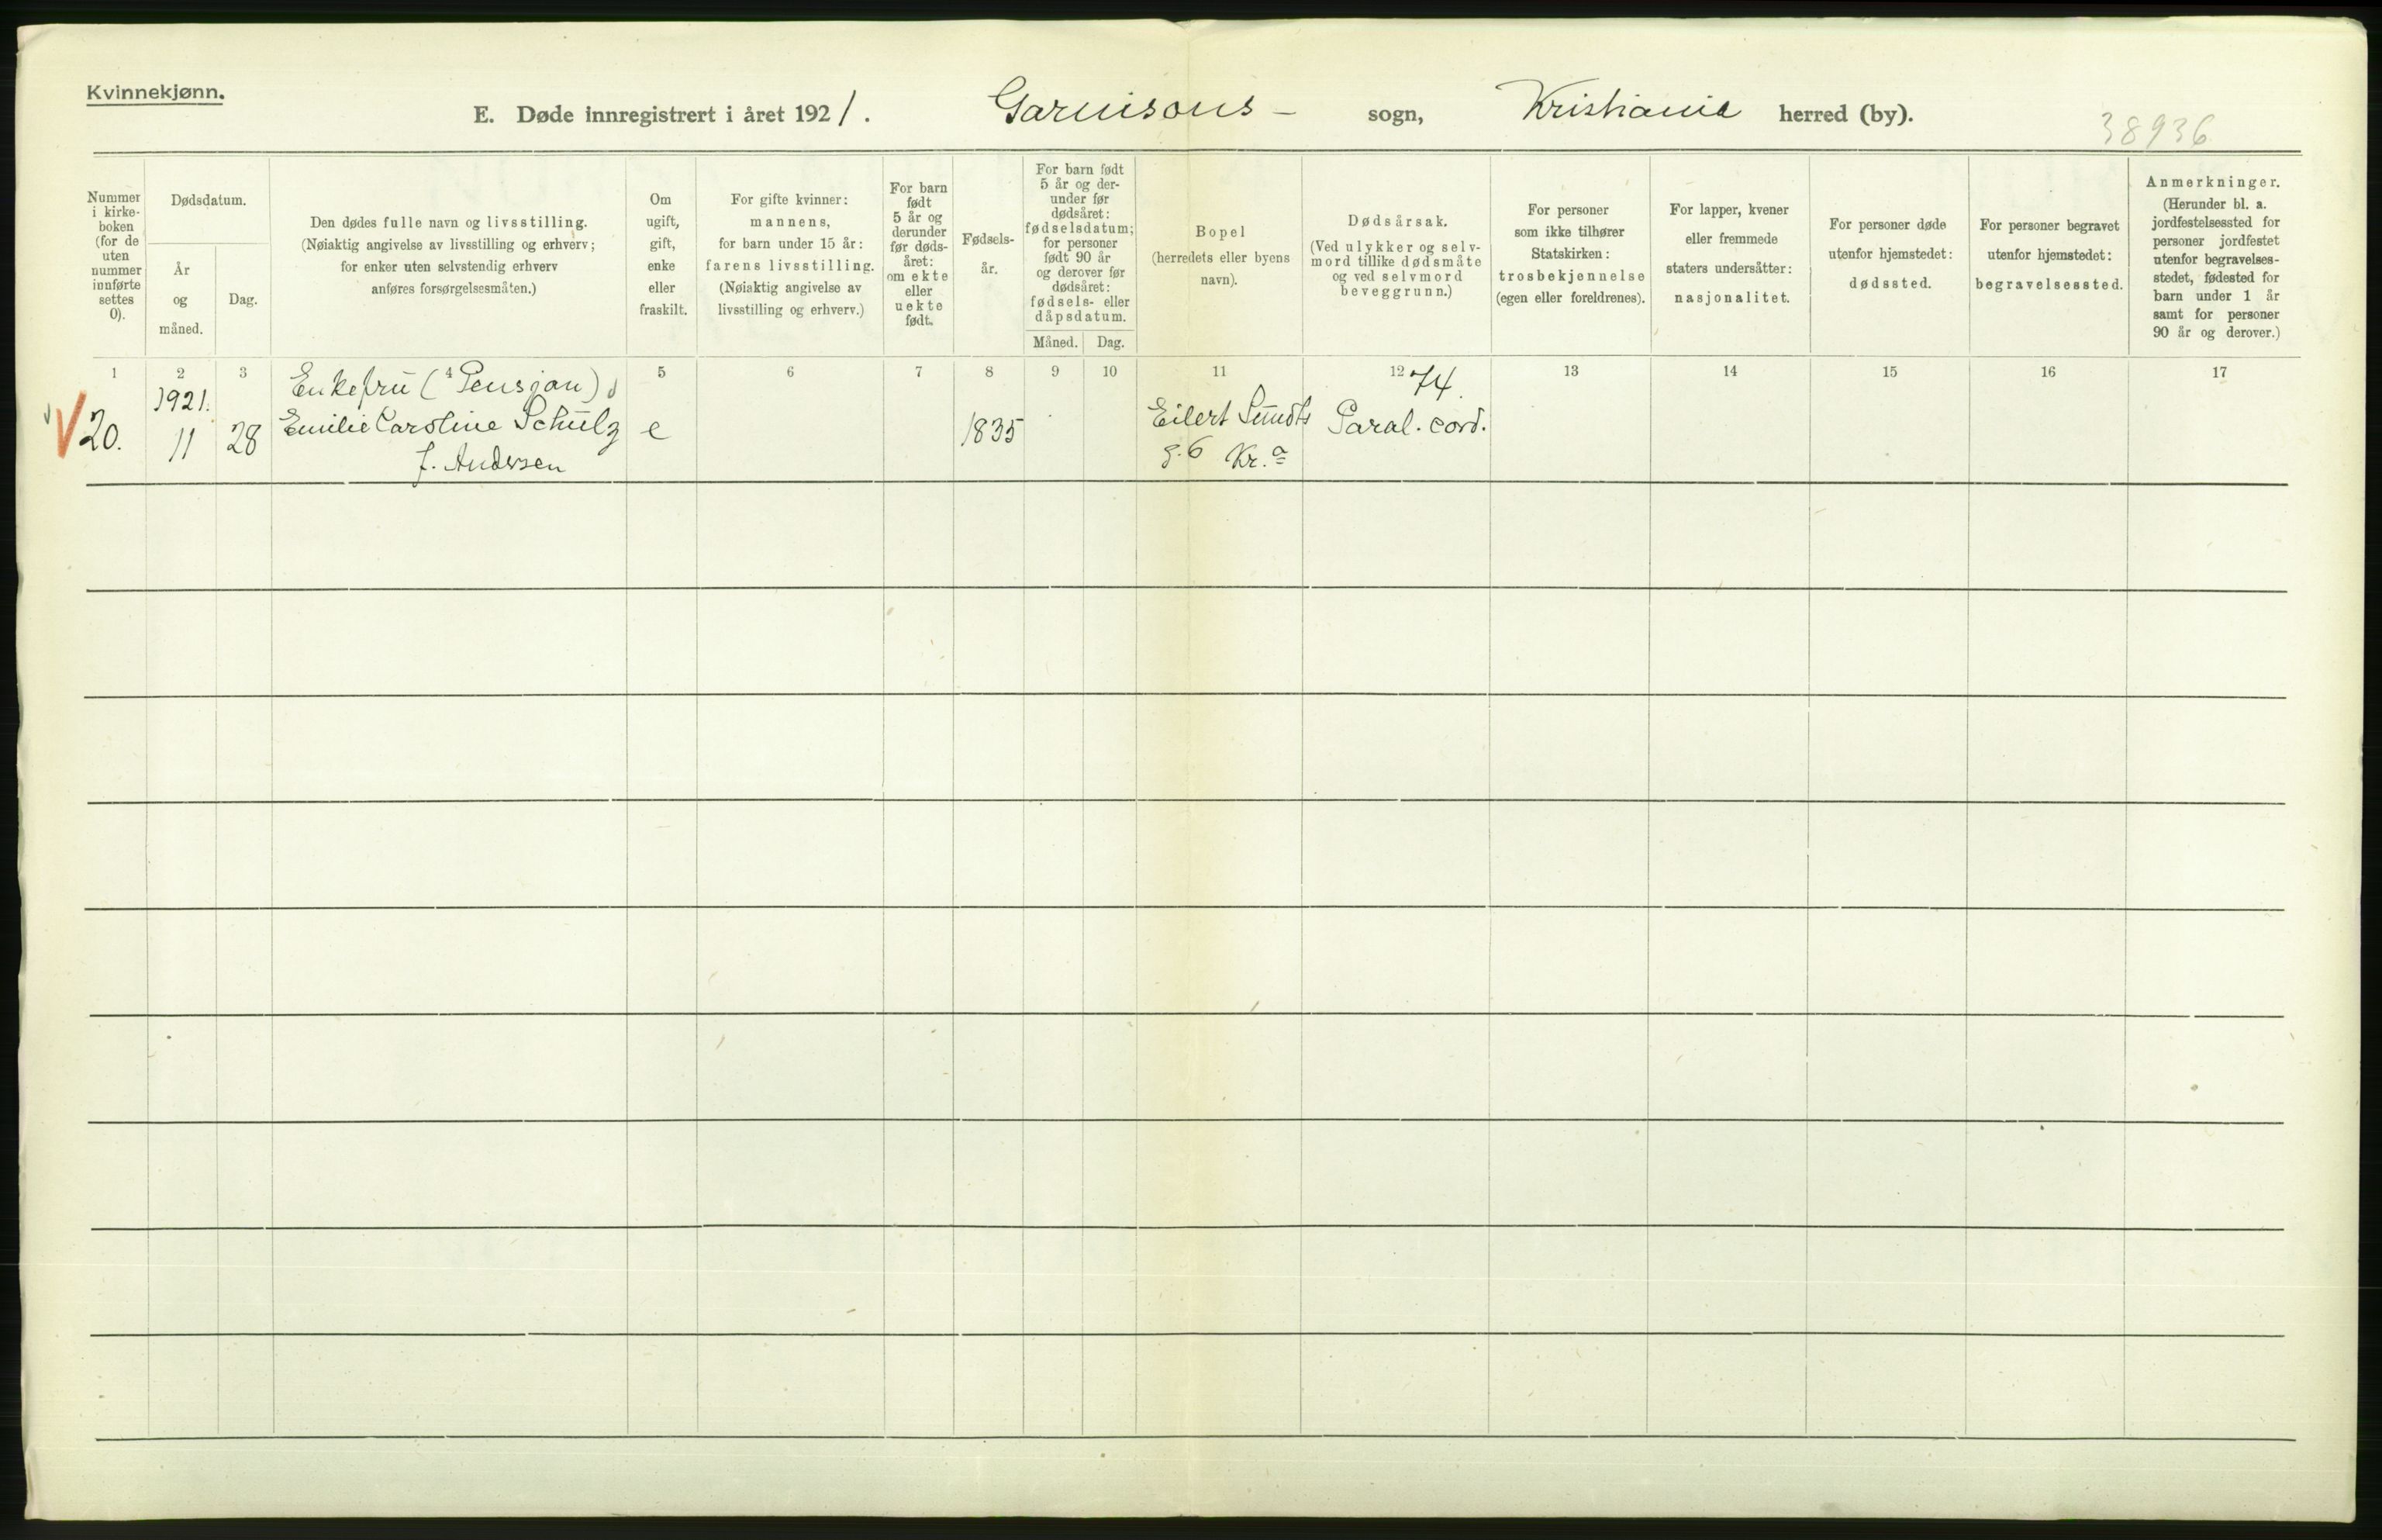 Kvinnekjønn.
E. Døde innregistrert i året 1921. Garnisons- sogn, Kristiania herred (by).
38936
Nummer
i kirke-
boken
(for de
uten
nummer
innførte
settes
0).
Dødsdatum.
År
og
måned.
Dag.
Den dødes fulle navn og livsstilling.
(Nøiaktig angivelse av livsstilling og erhverv;
for enker uten selvstendig erhverv
anføres forsørgelsesmåten.)
Om
ugift,
gift,
enke
eller
fraskilt.
For gifte kvinner:
mannens,
for barn under 15 år:
farens livsstilling.
(Nøiaktig angivelse av
livsstilling og erhverv.)
For barn
født
5 år og
derunder
før døds-
året:
om ekte
eller
uekte
født.
Fødsels-
år.
For barn født
5 år og der-
under før
dødsåret:
fødselsdatum;
for personer
født 90 år
og derover før
dødsåret:
fødsels- eller
dåpsdatum.
Måned. Dag.
Bopel
(herredets eller byens
navn).
Dødsårsak.
(Ved ulykker og selv-
mord tillike dødsmåte
og ved selvmord
beveggrunn.)
For personer
som ikke tilhører
Statskirken:
trosbekjennelse
(egen eller foreldrenes).
For lapper, kvener
eller fremmede
staters undersåtter:
nasjonalitet.
For personer døde
utenfor hjemstedet:
dødssted.
For personer begravet
utenfor hjemstedet:
begravelsessted.
Anmerkninger.
(Herunder bl. a.
jordfestelsessted for
personer jordfestet
utenfor begravelses-
stedet, fødested for
barn under 1 år
samt for personer
90 år og derover.)
1 2 3 4 5 6 7 8 9 10 11 12 13 14 15 16 17
20.
1921.
11
28
Enkefrü (Pensjon)
Emilie Caroline Schülz
f. Andersen
e
1835
Eilert Sündts
g. 6 Kr.a
74.
Paral. cord.